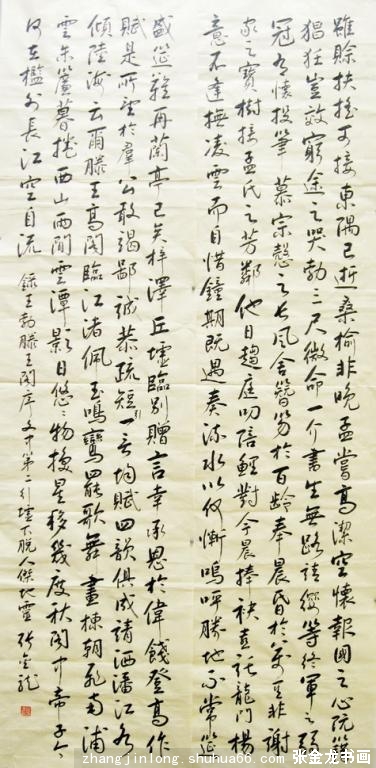 雖賒扶搖可接東隅已逝桑榆非晚孟嘗高潔空懷報國之心阮籍
猖狂豈效窮途之哭勃三尺微命一介書生無路請纓等終軍之弱
冠有懷投筆慕宗慤之長風舍簪笏於百齡奉晨昏於萬里非謝
家之寶樹接孟氏之芳鄰他日趨庭叨陪鯉對今晨捧袂喜託龍門楊
意不逢撫凌雲而自惜鐘期既遇奏流水以何慚嗚呼勝地不常筵
盛筵難再蘭亭已矣梓澤丘墟臨別贈言幸承恩於偉餞登高作
賦是所望於群公敢竭鄙誠恭疏短引一言均賦四韻俱成請洒潘江各
傾陸海云爾滕王高閣臨江渚佩玉鳴鸞罷歌舞畫棟朝飛南浦
雲朱簾暮捲西山雨閒雲潭影日悠悠物換星移幾度秋閣中帝子今
何在檻外長江空自流 錄王勃滕王閣序文中第二引墟下脫人傑地靈 張金龍
zhangjinlong.shuhua66.com 张金龙书画